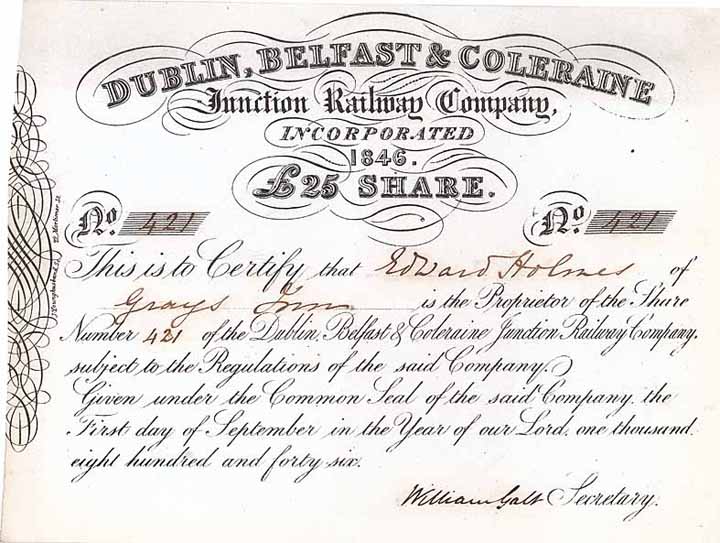 DUBLIN, BELFAST & COLERAINE
Junction Railway Company,
INCORPORATED
1846.
£25 SHARE.
No. 421 No. 421
This is to Certify that Edward Holmes of
Grays Inn is the Proprietor of the Share
Number 421 of the Dublin, Belfast & Coleraine Junction Railway Company,
subject to the Regulations of the said Company.
Given under the Common Seal of the said Company, the
First day of September in the Year of our Lord, one thousand
eight hundred and forty six.
William Galt Secretary.